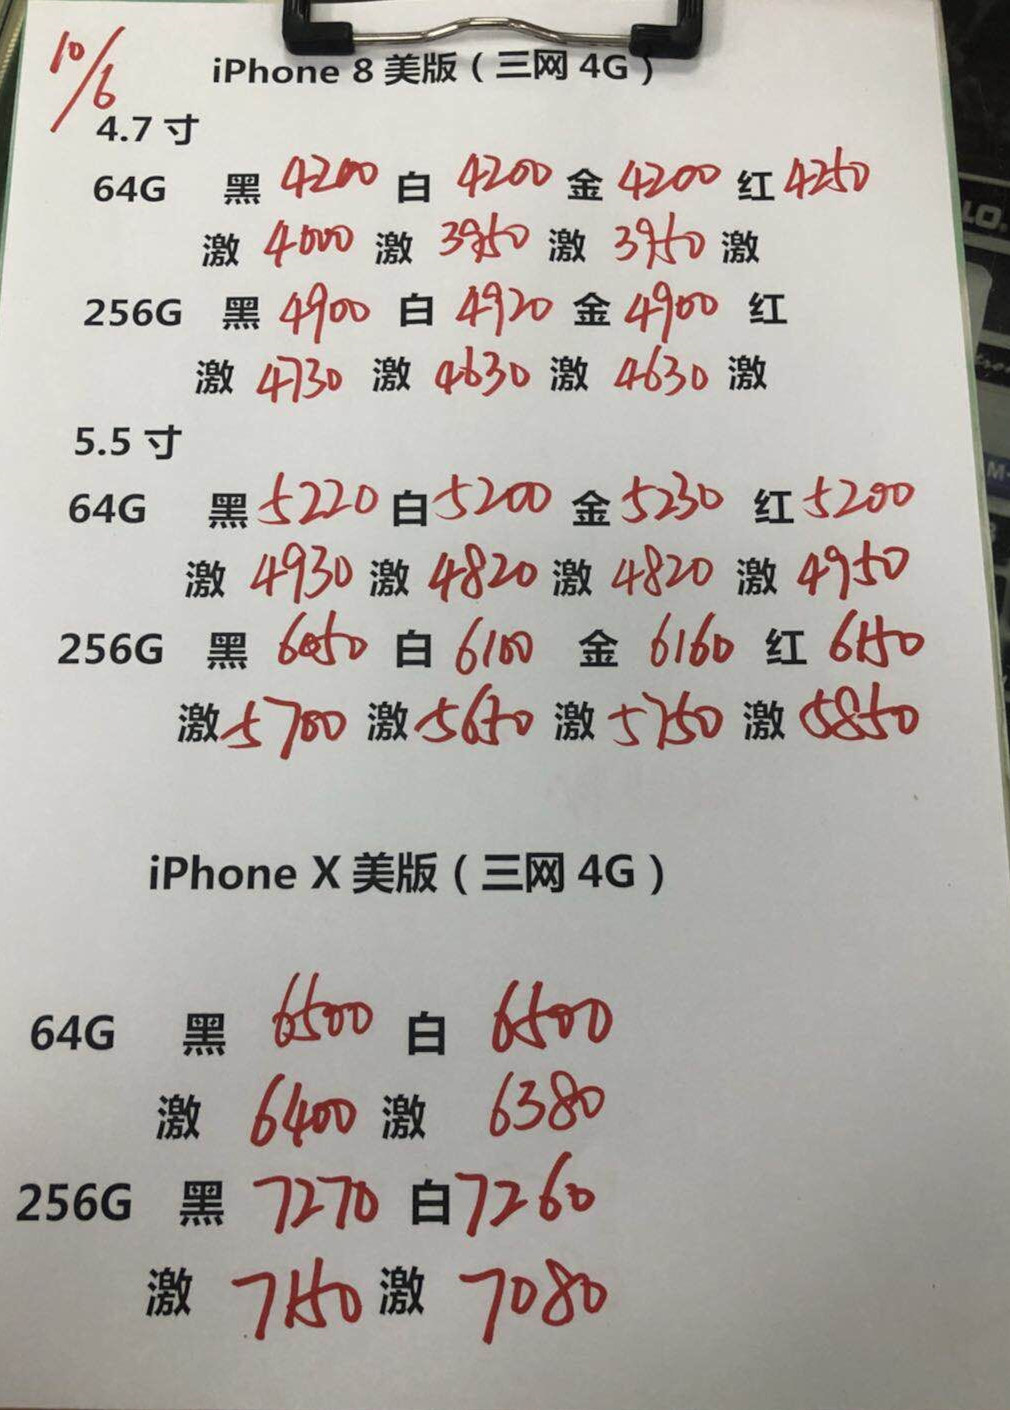 10/6
iPhone 8 美版（三网 4G）
4.7 寸
64G 黑 4200 白 4200 金 4200 红 4250
激 4000 激 3950 激 3950 激
256G 黑 4900 白 4920 金 4900 红
激 4730 激 4630 激 4630 激
5.5 寸
64G 黑 5220 白 5200 金 5230 红 5200
激 4930 激 4820 激 4820 激 4950
256G 黑 6050 白 6100 金 6160 红 6150
激 5700 激 5650 激 5750 激 5850
iPhone X 美版（三网 4G）
64G 黑 6500 白 6500
激 6400 激 6380
256G 黑 7270 白 7260
激 7150 激 7080